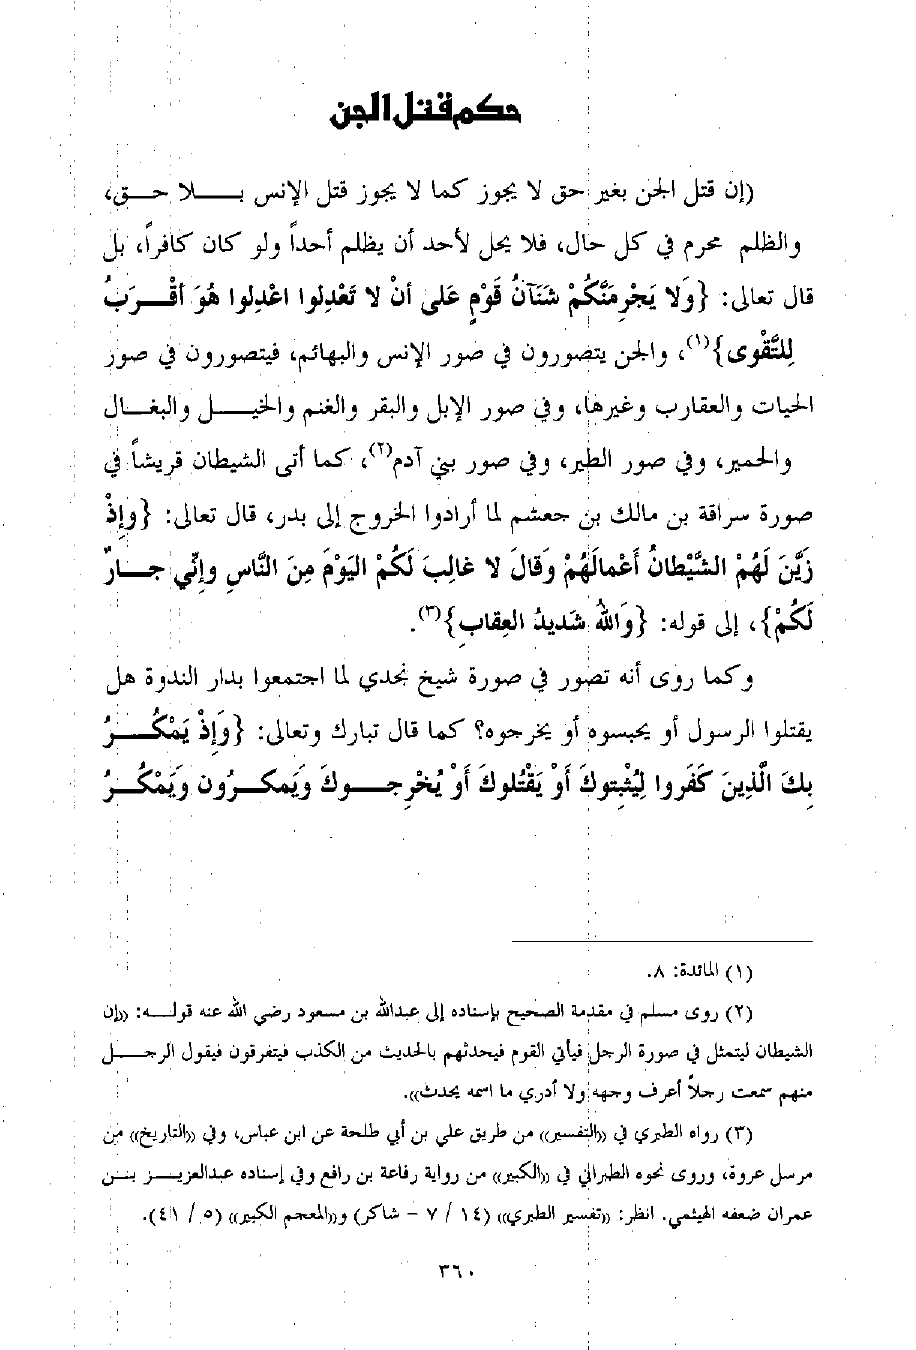 حكم قتل الجن
(إن قتل الجن بغير حق لا يجوز كما لا يجوز قتل الإنس بلا حق،
والظلم محرم في كل حال، فلا يحل لأحد أن يظلم أحداً ولو كان كافراً، بل
قال تعالى: {وَلا يَجْرِمَنَّكُمْ شَنَآنُ قَوْمٍ عَلى أنْ لا تَعْدِلوا اعْدِلوا هُوَ أقْرَبُ
لِلتَّقْوى}(١)، والجن يتصورون في صور الإنس والبهائم، فيتصورون في صور
الحيات والعقارب وغيرها، وفي صور الإبل والبقر والغنم والخيل والبغال
والحمير، وفي صور الطير، وفي صور بني آدم(٢)، كما أتى الشيطان قريشاً في
صورة سراقة بن مالك بن جعشم لما أرادوا الخروج إلى بدر، قال تعالى: {وإذْ
زَيَّنَ لَهُمْ الشَّيْطانُ أعْمالَهُمْ وَقالَ لا غالِبَ لَكُمْ اليَوْمَ مِنَ النَّاسِ وإنِّي جارٌ
لَكُمْ}، إلى قوله: {وَاللهُ شَديدُ العِقابِ}(٣).
وكما روى أنه تصور في صورة شيخ نجدي لما اجتمعوا بدار الندوة هل
يقتلوا الرسول أو يحبسوه أو يخرجوه؟ كما قال تبارك وتعالى: {وَإذْ يَمْكُرُ
بِكَ الَّذِينَ كَفَروا لِيُثْبِتوكَ أَوْ يَقْتُلوكَ أَوْ يُخْرِجوكَ وَيَمكرُون وَيَمْكُرُ
(١) المائدة: ٨.
(٢) روى مسلم في مقدمة الصحيح بإسناده إلى عبدالله بن مسعود رضي الله عنه قوله: «إن
الشيطان ليتمثل في صورة الرجل فيأتي القوم فيحدثهم بالحديث من الكذب فيتفرقون فيقول الرجل
منهم سمعت رجلاً أعرف وجهه ولا أدري ما اسمه يحدث».
(٣) رواه الطبري في «التفسير» من طريق علي بن أبي طلحة عن ابن عباس، وفي «التاريخ» من
مرسل عروة، وروى نحوه الطبراني في «الكبير» من رواية رفاعة بن رافع وفي إسناده عبدالعزيز بن
عمران ضعفه الهيثمي. انظر: «تفسير الطبري» (١٤ / ٧ - شاكر) و«المعجم الكبير» (٥ / ٤١).
٣٦٠